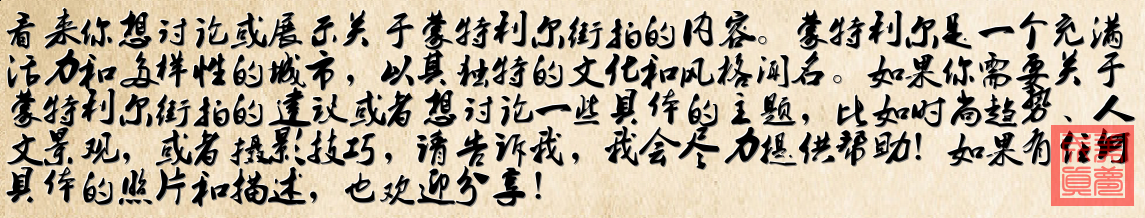 看来你想讨论或展示关于蒙特利尔街拍的内容。蒙特利尔是一个充满
活力和多样性的城市，以其独特的文化和风格闻名。如果你需要关于
蒙特利尔街拍的建议或者想讨论一些具体的主题，比如时尚趋势、人
文景观，或者摄影技巧，请告诉我，我会尽力提供帮助！如果有任何
具体的照片和描述，也欢迎分享！